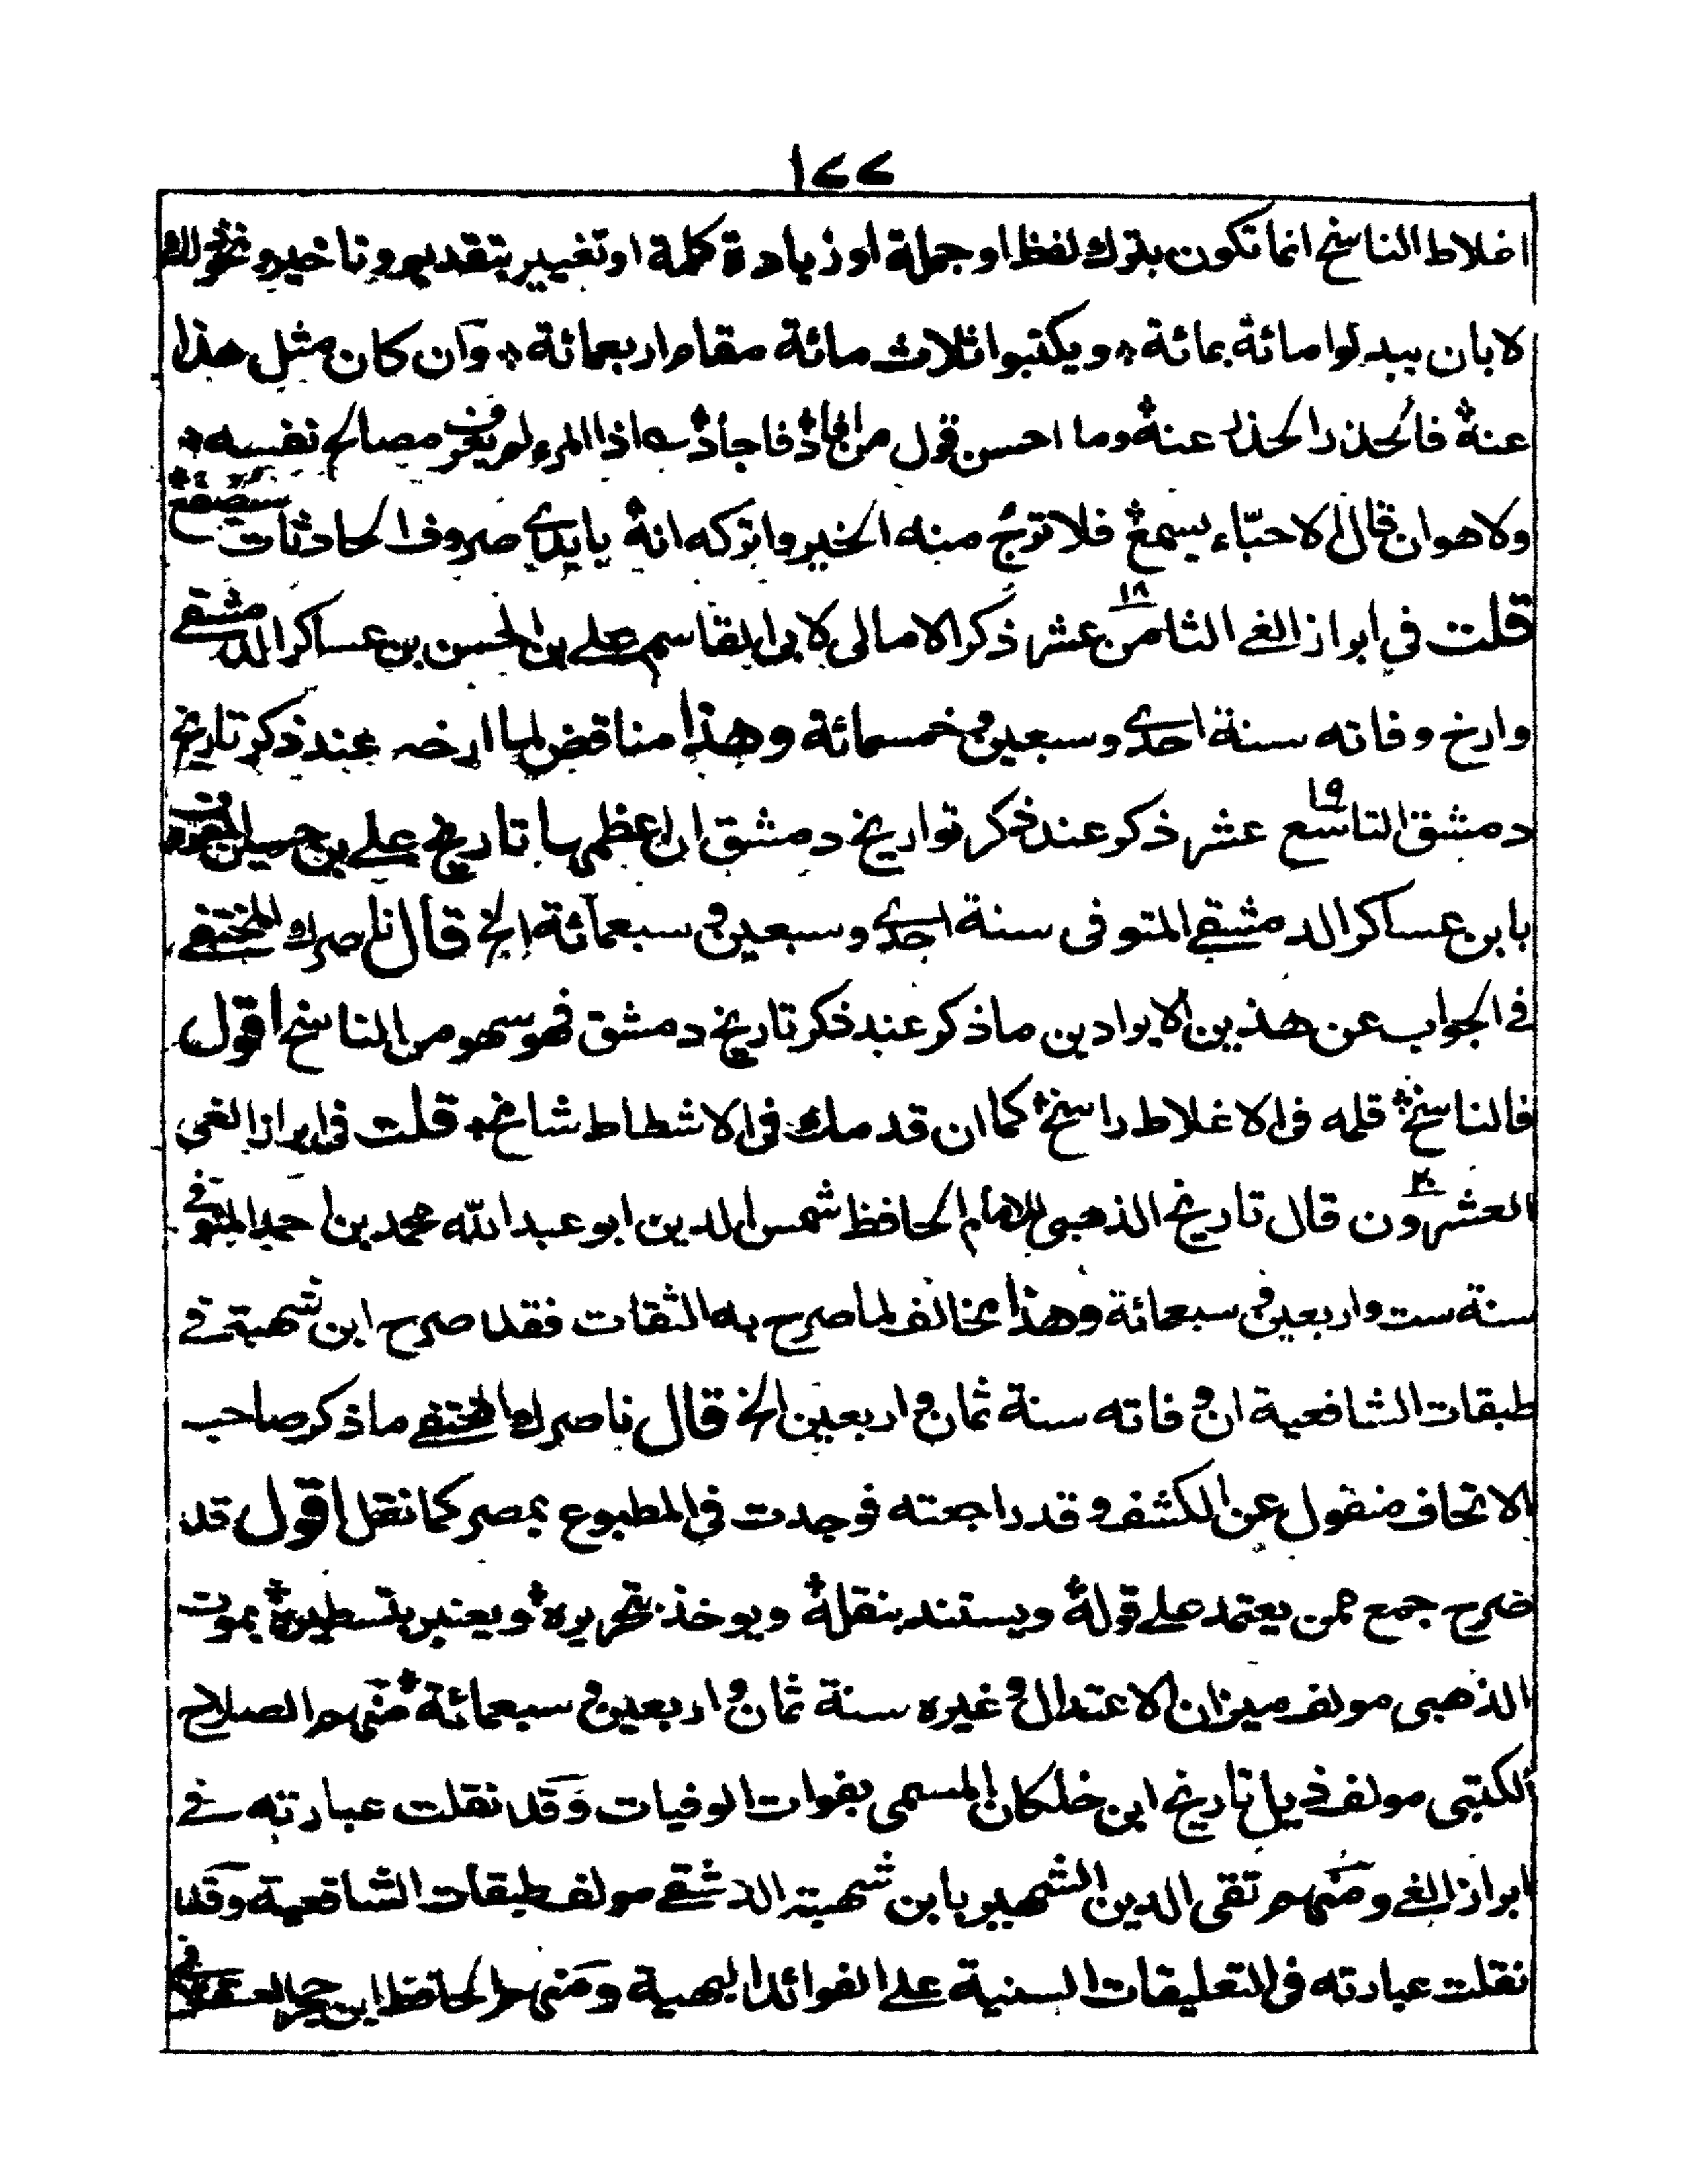 ١٧٧
اغلاط الناسخ انما تكون بترك لفظ او جملة او زيادة كلمة او تغيير بتقديم وتاخير ونحو ذلك
لا بان يبدلوا مائة بمائة ٭ ويكتبوا ثلاث مائة مقام اربعمائة ٭ وان كان مثل هذا
عنه فالحذر الحذر عنه وما احسن قول من افاد فاجاد ؎ اذا المرء لم يعرف مصالح نفسه ٭
ولا هو ان قال الاحباء يسمع فلا ترج منه الخير واتركه انه بايدى صروف الحادثات سيصفع
قلت فى ابراز الغى الثامن عشر ١٨ ذكر الامالى لابى القاسم على بن الحسن بن عساكر الدمشقى
وارخ وفاته سنة احدى وسبعين وخمسمائة وهذا مناقض لما ارخه عند ذكر تاريخ
دمشق التاسع ١٩ عشر ذكر عند ذكر تواريخ دمشق ان اعظمها تاريخ على بن حسين المعروف
بابن عساكر الدمشقى المتوفى سنة احدى وسبعين وسبعمائة الخ قال ناصرك المختفى
فى الجواب عن هذين الايرادين ما ذكر عند ذكر تاريخ دمشق فهو سهو من الناسخ اقول
فالناسخ قلمه فى الاغلاط راسخ كما ان قدمك فى الاشطاط شامخ ٭ قلت فى ابراز الغى
العشرون ٢٠ قال تاريخ الذهبى للامام الحافظ شمس الدين ابو عبد الله محمد بن احمد المتوفى
سنة ست واربعين وسبعمائة وهذا يخالف لما صرح به الثقات فقد صرح ابن شهبة فى
طبقات الشافعية ان وفاته سنة ثمان واربعين الخ قال ناصرك المختفى ما ذكر صاحب
الاتحاف منقول عن الكشف وقد راجعته فوجدت فى المطبوع بمصر كما نقل اقول قد
صرح جمع ممن يعتمد على قوله ويستند بنقله ويوخذ بتحريره ويعتبر بتسطيره بموت
الذهبى مولف ميزان الاعتدال وغيره سنة ثمان واربعين وسبعمائة منهم الصلاح
الكتبى مولف ذيل تاريخ ابن خلكان المسمى بفوات الوفيات وقد نقلت عبارته فى
ابراز الغى ومنهم تقى الدين الشهير بابن شهبة الدمشقى مولف طبقات الشافعية وقد
نقلت عبارته فى التعليقات السنية على الفوائد البهية ومنهم الحافظ ابن حجر العسقلانى